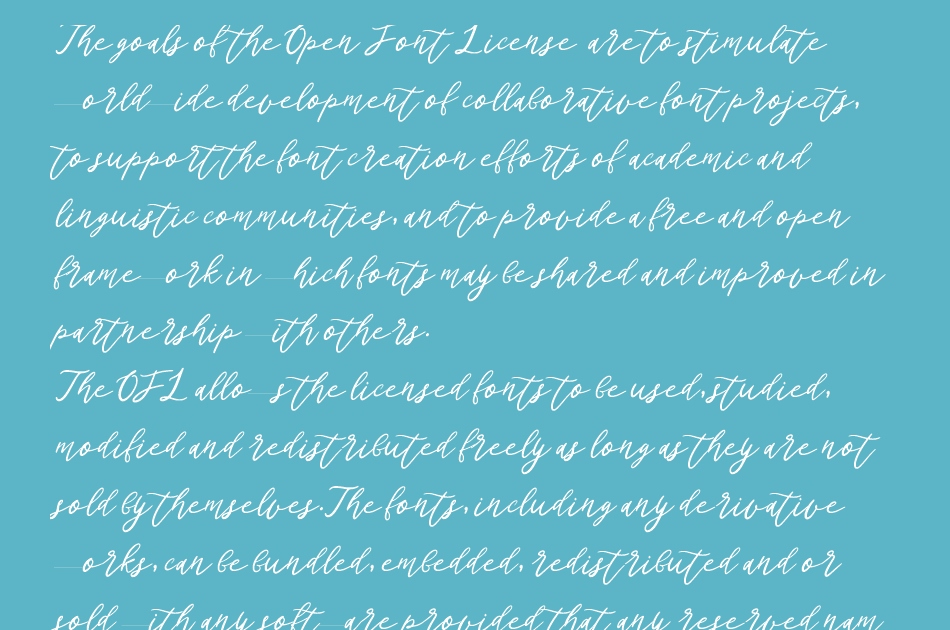 The goals of the Open Font License are to stimulate
_orld_ide development of collaborative font projects,
to support the font creation efforts of academic and
linguistic communities, and to provide a free and open
frame_ork in _hich fonts may be shared and improved in
partnership _ith others.
The OFL allo_s the licensed fonts to be used, studied,
modified and redistributed freely as long as they are not
sold by themselves. The fonts, including any derivative
_orks, can be bundled, embedded, redistributed and or
sold _ith any soft_are provided that any reserved nam